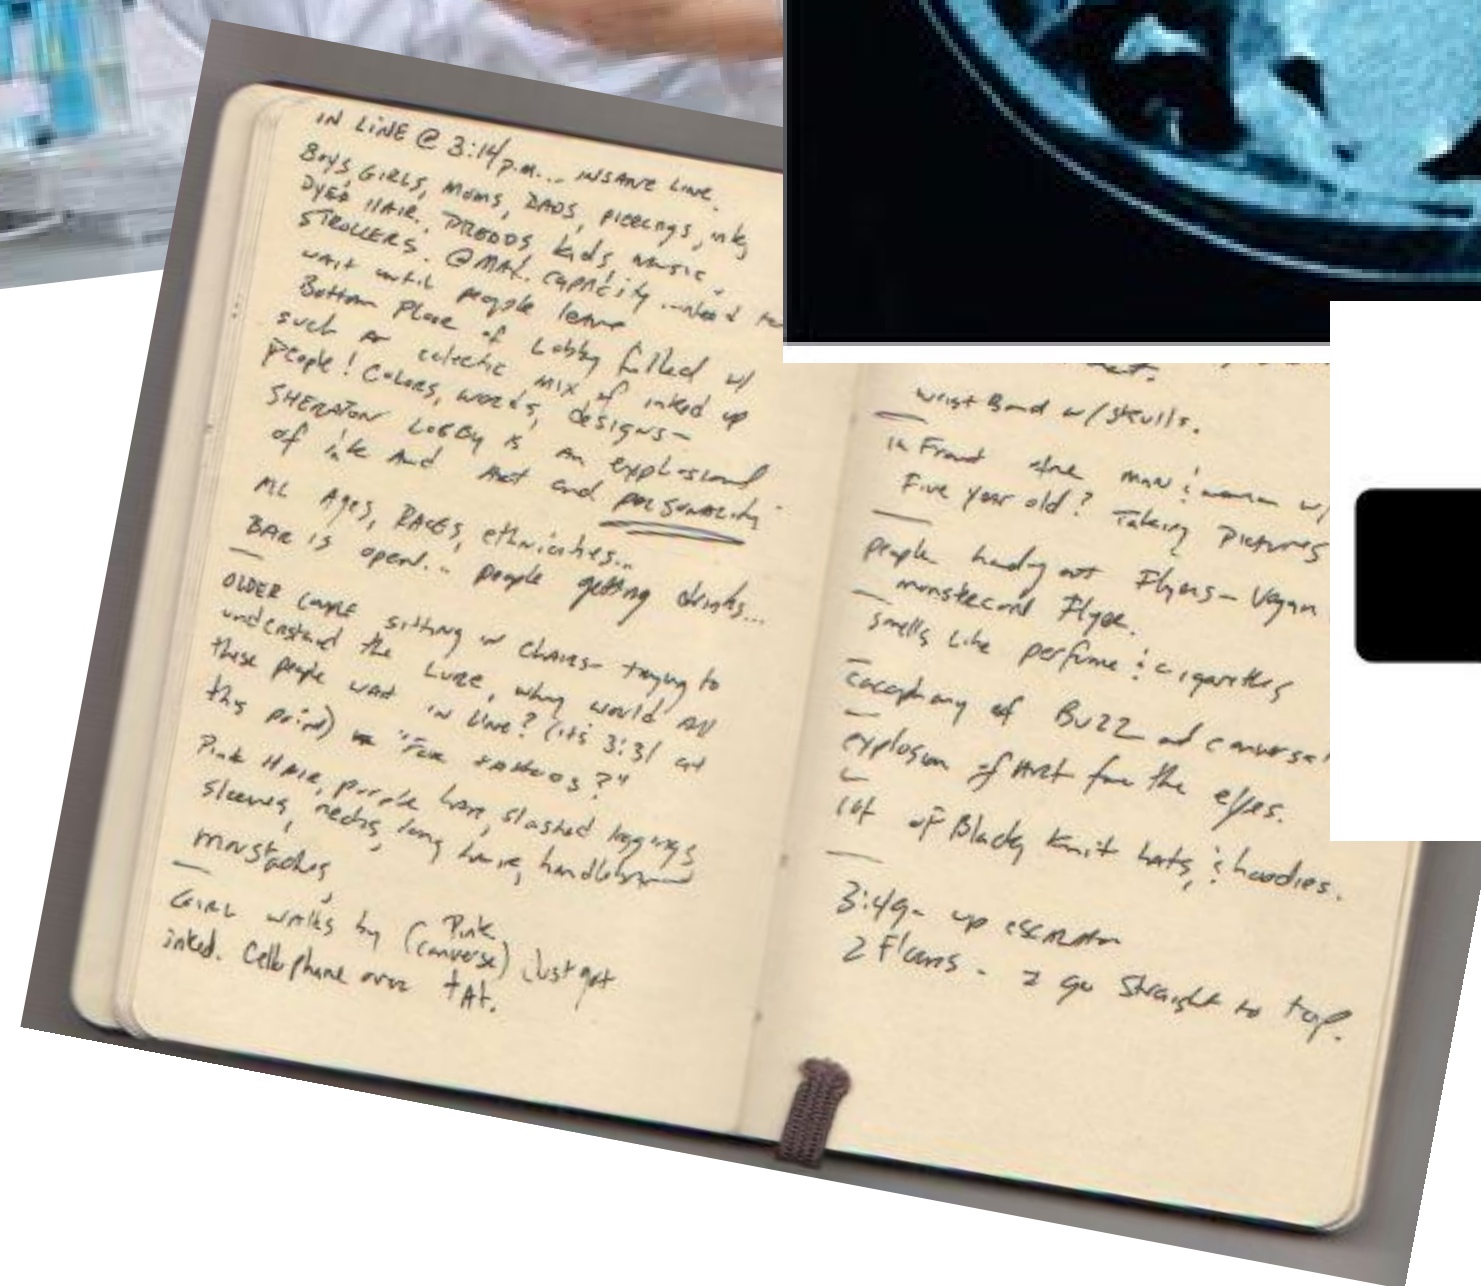 IN LINE @ 3:14 p.m... INSANE LINE.
Boys, GIRLS, Moms, DADS, piercings, ink,
Dyed HAIR. DREDDS kids, music,
STROLLERS. @MAX. capacity...need to
wait until people leave
Bottom Floor of Lobby filled w/
such an eclectic mix of inked up
people! Colors, words, designs-
SHERATON LOBBY is an explosion
of ink And Art and personality.
ALL Ages, RACES, ethnicities...
BAR is open... people getting drinks...
OLDER COUPLE sitting in chairs- trying to
understand the LURE, why would all
these people wait in line? (it's 3:31 at
this point) "For tattoos?"
Pink HAIR, purple hair, slashed leggings
sleeves, necks, long hair, handlebar
moustaches,
GIRL walks by (Pink
converse) Just got
inked. Cellophane over tAt.
wrist Band w/ skulls.
in Front are man & woman w/
Five year old? Taking Pictures
people handing out Flyers- Vegan
Flyer.
smells like perfume & cigarettes
cacophony of BUZZ and
explosion of ART for the eyes.
lot of Black Knit hats, & hoodies.
3:49- up escalator
2 Floors - 2 go straight to top.